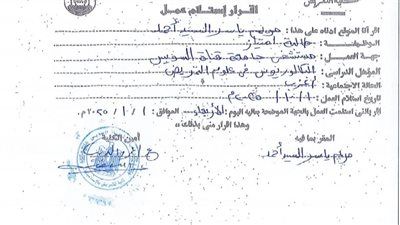 اقرار إستلام عمل
اقر أنا الموقع أدناه على هذا : مريم ياسر السيد أحمد
الوظيفة : طالبة امتياز
جهة العمل : مستشفى جامعة قناة السويس
المؤهل الدراسى : بكالوريوس فى علوم التمريض
الحالة الاجتماعية :
تاريخ استلام العمل : ١ / ١٠ / ٢٠٢٥م
اقر باننى استلمت العمل بالجهة الموضحة بعاليه اليوم : الأربعاء الموافق : ١ / ١٠ / ٢٠٢٥م
وهذا اقرار منى بذلك ،،
المقر بما فيه
أمين الكلية
مريم ياسر السيد أحمد